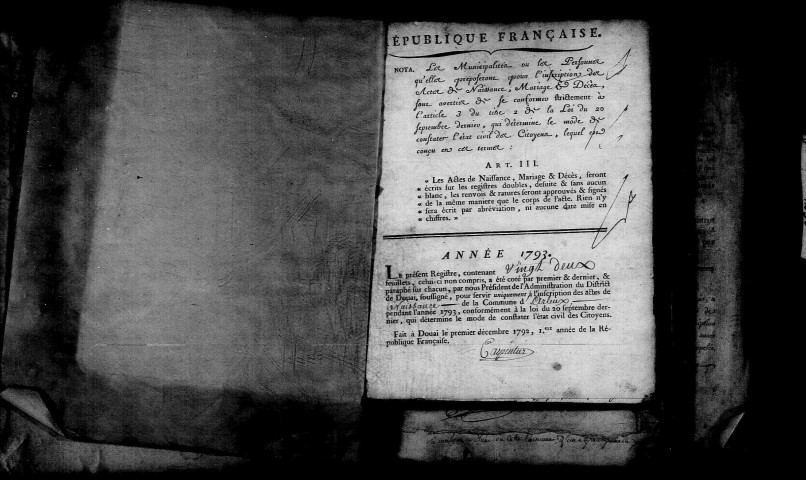 RÉPUBLIQUE FRANÇAISE.
NOTA. Les Municipalités ou les Personnes
qu'elles préposeront pour l'inscription des
Actes de Naissance, Mariage & Décès,
sont averties de se conformer strictement à
l'article 3 du titre 2 de la Loi du 20
septembre dernier, qui détermine le mode de
constater l'état civil des Citoyens, lequel est
conçu en ces termes :
ART. III.
« Les Actes de Naissance, Mariage & Décès, seront
« écrits sur les registres doubles, desuite & sans aucun
« blanc, les renvois & ratures seront approuvés & signés
« de la même maniere que le corps de l'acte. Rien n'y
« sera écrit par abréviation, ni aucune date mise en
« chiffres. »
ANNÉE 1793.
LE présent Registre, contenant vingt deux
feuillets, celui-ci non compris, a été coté par premier & dernier, &
paraphé sur chacun, par nous Président de l'Administration du District
de Douai, soussigné, pour servir uniquement à l'inscription des actes de
Naissance de la Commune d'Arleux
pendant l'année 1793, conformément à la loi du 20 septembre der-
nier, qui détermine le mode de constater l'état civil des Citoyens.
Fait à Douai le premier décembre 1792, 1.ere année de la Ré-
publique Française.
Carpentier